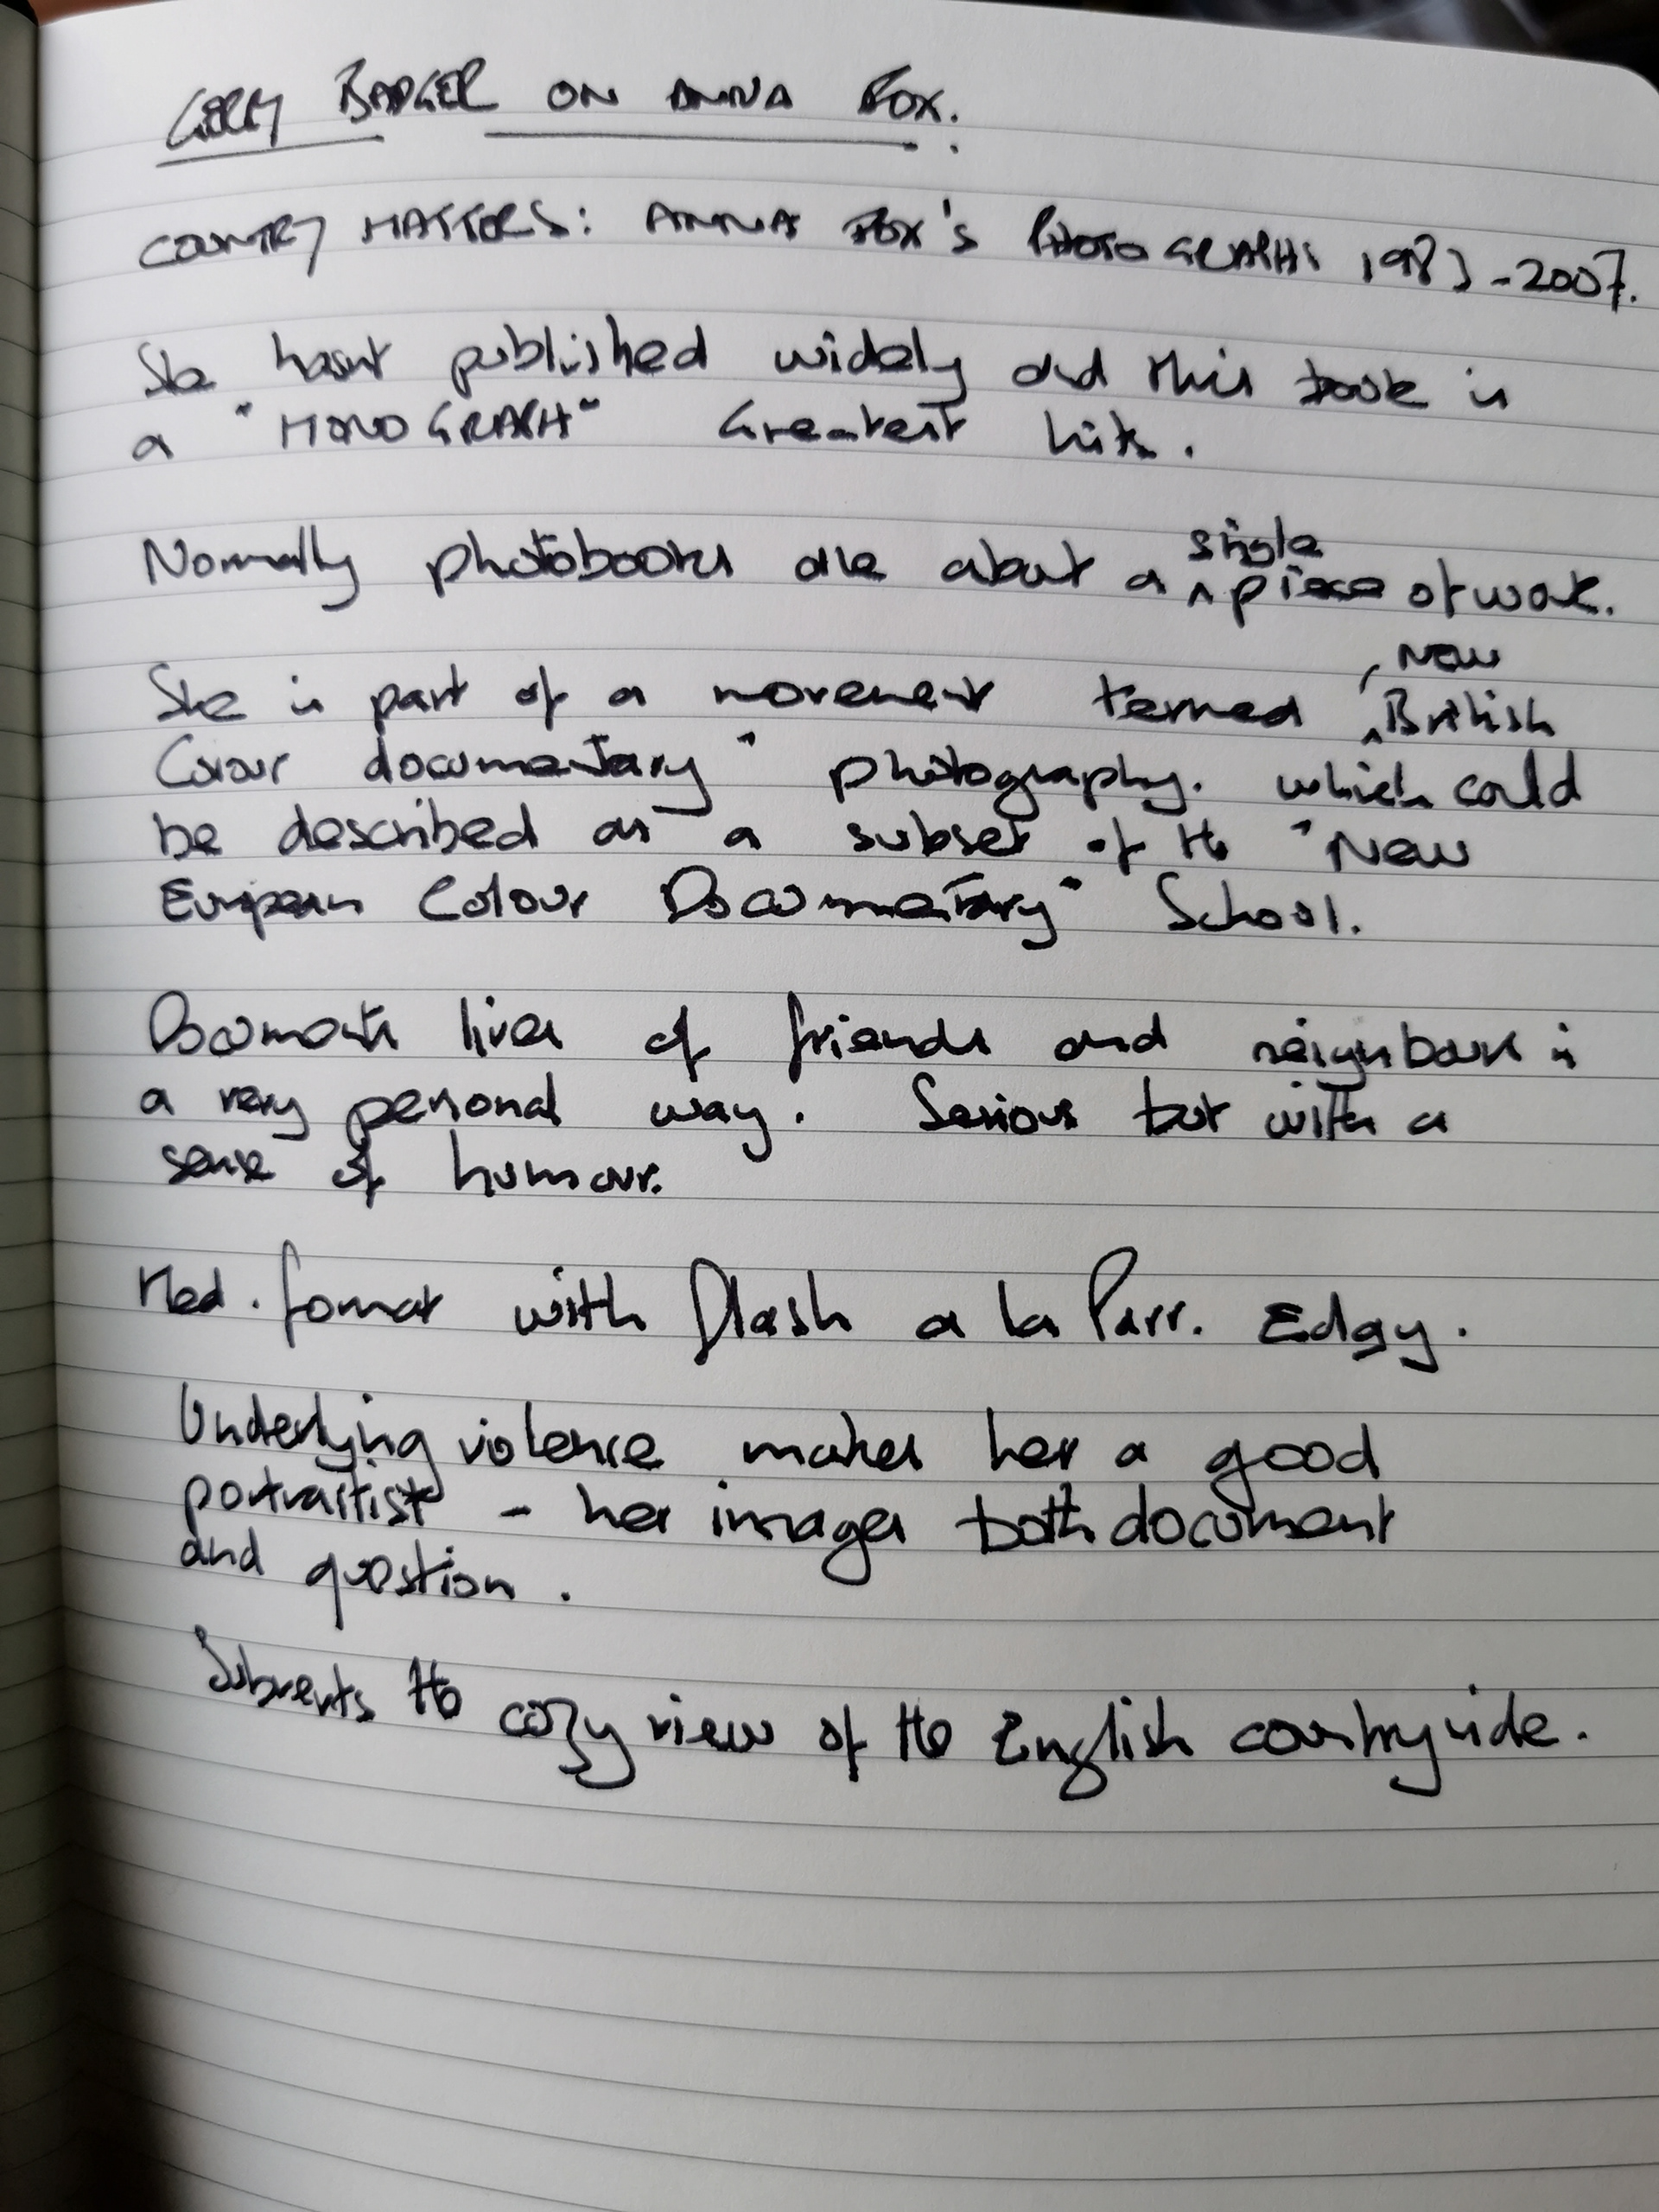 GERRY BADGER ON ANNA FOX.
COUNTRY MATTERS: ANNA FOX'S PHOTOGRAPHS 1983-2007.
She hasnt published widely and this book is
a "MONOGRAPH" Greatest hits.
Normally photobooks are about a single piece of work.
She is part of a movement termed "New British
Colour documentary" photography. which could
be described as a subset of the "New
European Colour Documentary" School.
Documents lives of friends and neighbours in
a very personal way. Serious but with a
sense of humour.
Med. format with flash a la Parr. Edgy.
Underlying violence makes her a good
portraitist - her images both document
and question.
Subverts the cozy view of the English countryside.